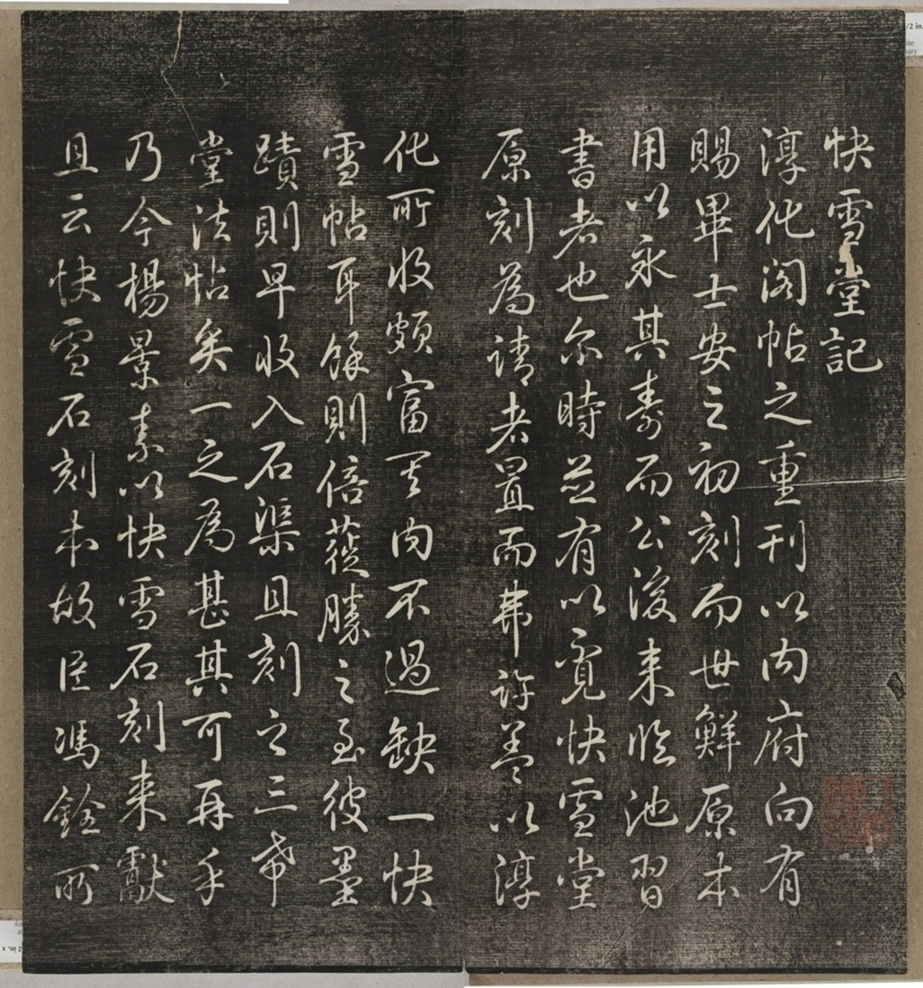 快雪堂記
淳化閣帖之重刊以内府向有
賜畢士安之初刻而世鮮原本
用以永其壽而公後来臨池習
書者也尔時並有以覓快雪堂
原刻為請者置而弗許盖以淳
化所收頗富其内不過缺一快
雪帖耳餘則倍蓰勝之至彼墨
蹟則早收入石渠且刻之三希
堂法帖矣一之為甚其可再乎
乃今楊景素以快雪石刻来獻
且云快雪石刻本故臣馮銓所